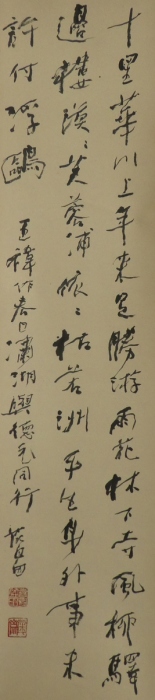 十里華川上年來足勝游雨花林下寺風柳驛
邊樓漠〻芙蓉浦依〻杜若洲平生身外事未
許付浮鷗 王禕作春日瀟湖與德元同行